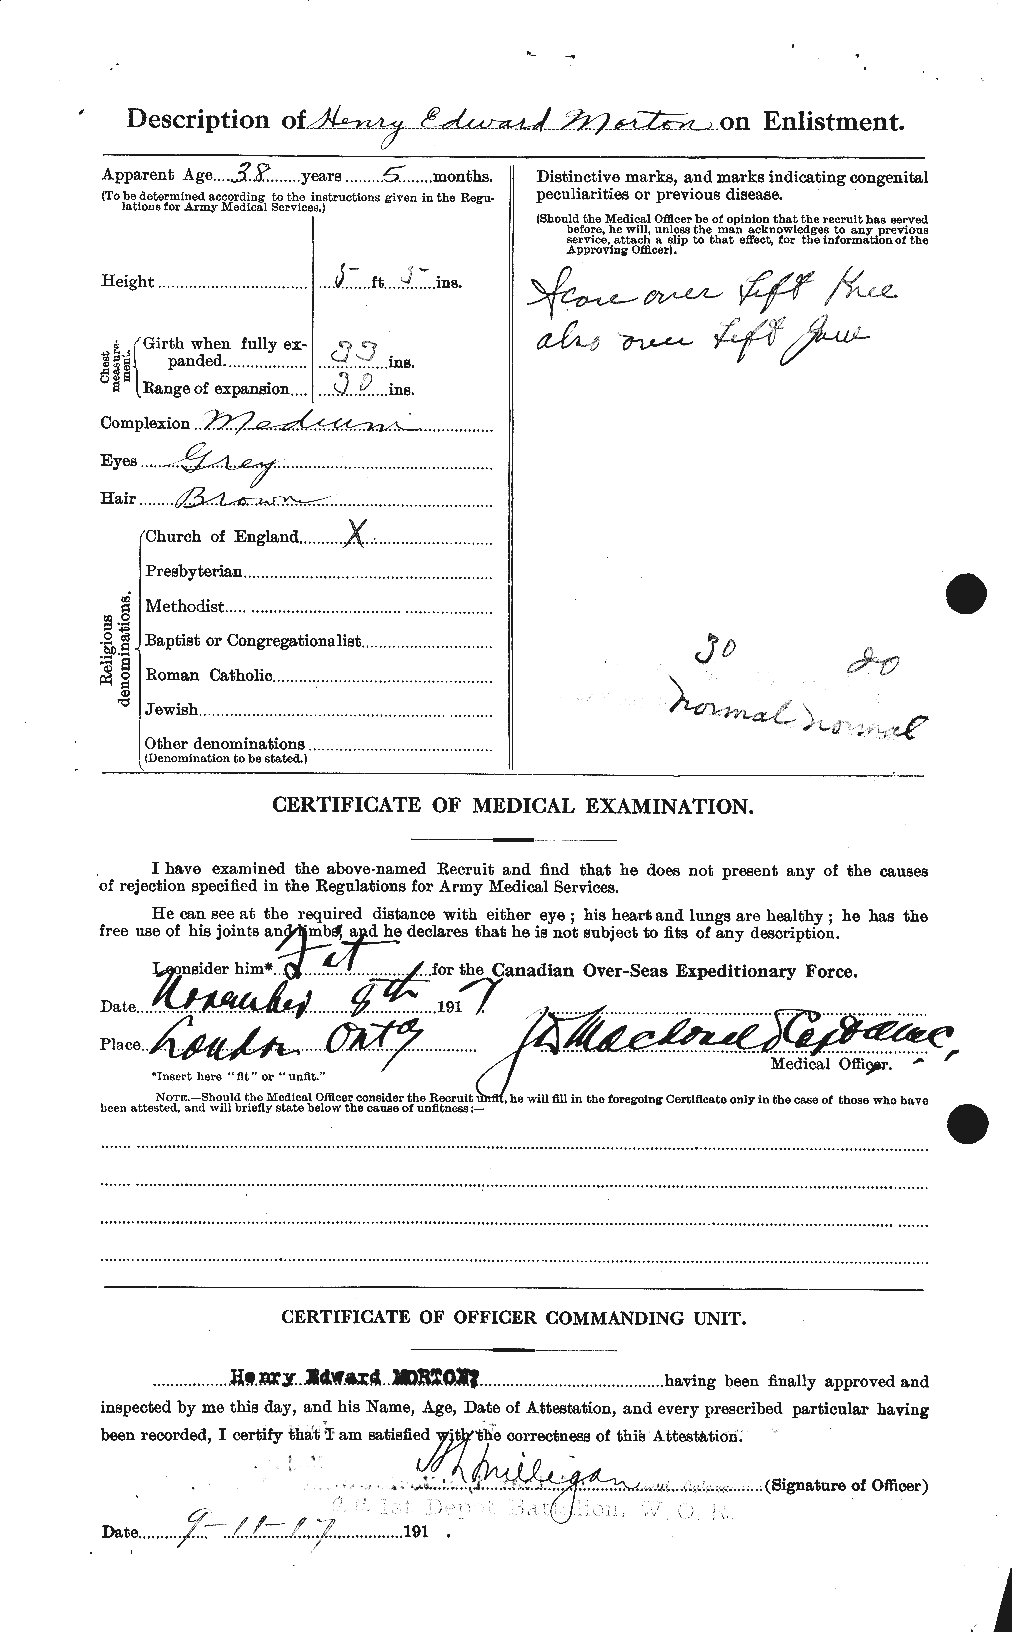 Description of Henry Edward Morton on Enlistment.
Apparent Age....38......years......5......months.
(To be determined according to the instructions given in the Regu-
lations for Army Medical Services.)
Height 5 ft. 5 ins.
Chest measure-ment.
Girth when fully ex-
panded 33 ins.
Range of expansion 30 ins.
Complexion Medium
Eyes Grey
Hair Brown
Religious denominations.
Church of England X
Presbyterian
Methodist
Baptist or Congregationalist
Roman Catholic
Jewish
Other denominations
(Denomination to be stated.)
Distinctive marks, and marks indicating congenital
peculiarities or previous disease.
(Should the Medical Officer be of opinion that the recruit has served
before, he will, unless the man acknowledges to any previous
service, attach a slip to that effect, for the information of the
Approving Officer).
over Left Knee
also over Left Jaw
30 20
normal normal
CERTIFICATE OF MEDICAL EXAMINATION.
I have examined the above-named Recruit and find that he does not present any of the causes
of rejection specified in the Regulations for Army Medical Services.
He can see at the required distance with either eye; his heart and lungs are healthy; he has the
free use of his joints and limbs, and he declares that he is not subject to fits of any description.
I consider him* Fit for the Canadian Over-Seas Expeditionary Force.
Date November 8th 1917
Place London Ont
Medical Officer.
*Insert here "fit" or "unfit."
NOTE.—Should the Medical Officer consider the Recruit unfit, he will fill in the foregoing Certificate only in the case of those who have
been attested, and will briefly state below the cause of unfitness:—
CERTIFICATE OF OFFICER COMMANDING UNIT.
Henry Edward MORTON having been finally approved and
inspected by me this day, and his Name, Age, Date of Attestation, and every prescribed particular having
been recorded, I certify that I am satisfied with the correctness of this Attestation.
Milligan (Signature of Officer)
1st Depot Battalion, W. O. R.
Date 9-11-17 191 .